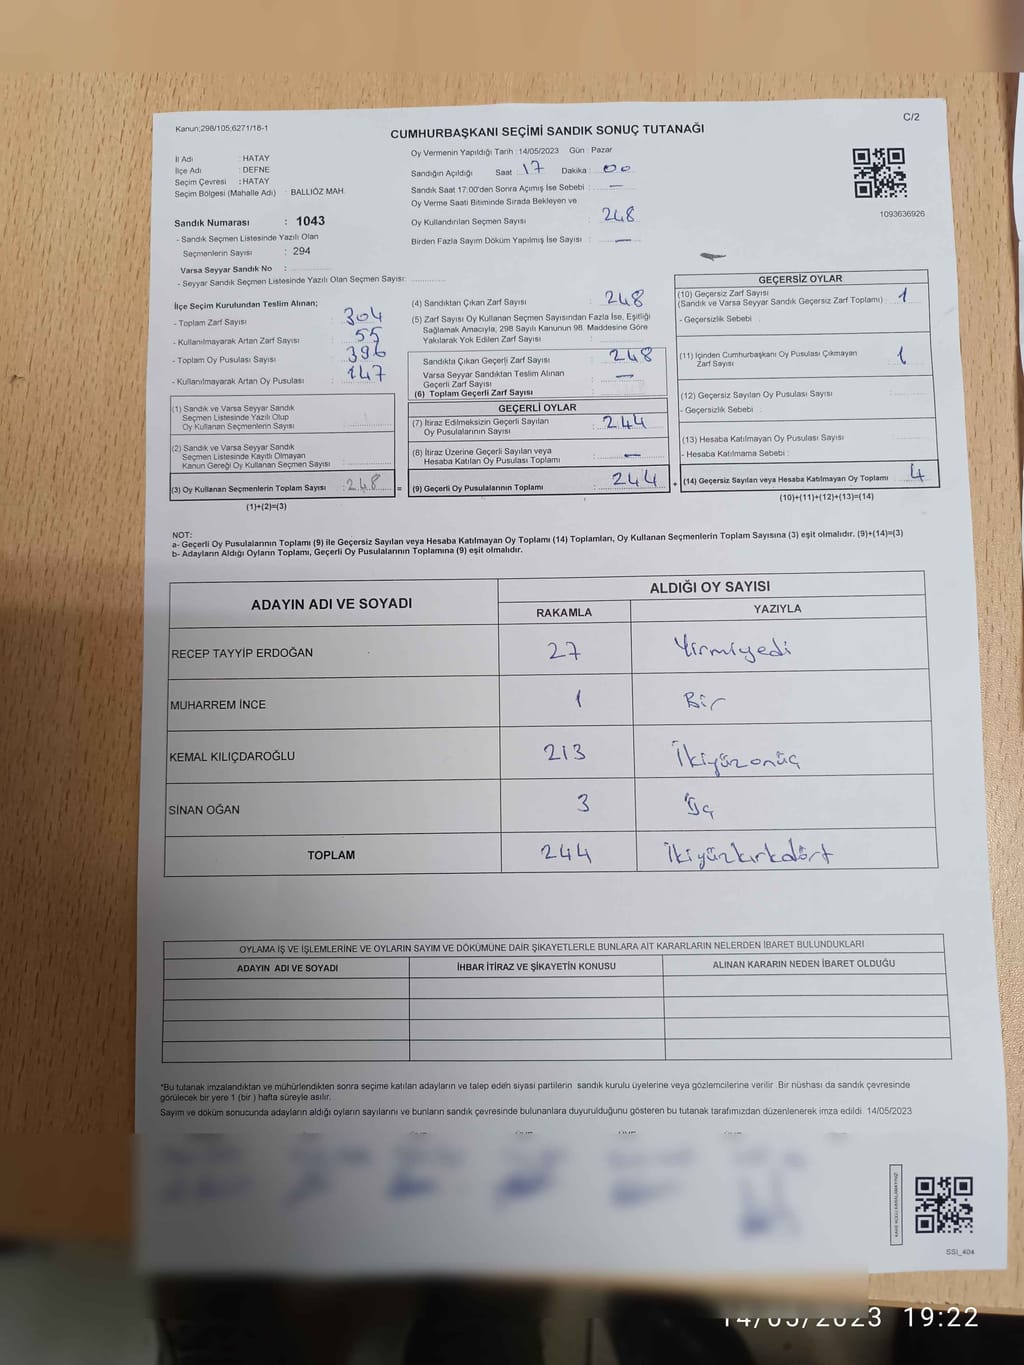 Kanun;298/105;6271/18-1
C/2
CUMHURBAŞKANI SEÇİMİ SANDIK SONUÇ TUTANAĞI
İl Adı : HATAY
İlçe Adı : DEFNE
Seçim Çevresi : HATAY
Seçim Bölgesi (Mahalle Adı) : BALLIÖZ MAH.
Oy Vermenin Yapıldığı Tarih : 14/05/2023 Gün : Pazar
Sandığın Açıldığı Saat : 17 Dakika : 00
Sandık Saat 17.00'den Sonra Açımış İse Sebebi : —
Oy Verme Saati Bitiminde Sırada Bekleyen ve
Oy Kullandırılan Seçmen Sayısı : 248
Birden Fazla Sayım Döküm Yapılmış İse Sayısı : —
1093636926
Sandık Numarası : 1043
- Sandık Seçmen Listesinde Yazılı Olan
Seçmenlerin Sayısı : 294
Varsa Seyyar Sandık No :
- Seyyar Sandık Seçmen Listesinde Yazılı Olan Seçmen Sayısı:
İlçe Seçim Kurulundan Teslim Alınan;
- Toplam Zarf Sayısı : 304
- Kullanılmayarak Artan Zarf Sayısı : 55
- Toplam Oy Pusulası Sayısı : 396
- Kullanılmayarak Artan Oy Pusulası : 147
(1) Sandık ve Varsa Seyyar Sandık
Seçmen Listesinde Yazılı Olup
Oy Kullanan Seçmenlerin Sayısı :
(2) Sandık ve Varsa Seyyar Sandık
Seçmen Listesinde Kayıtlı Olmayan
Kanun Gereği Oy Kullanan Seçmen Sayısı :
(3) Oy Kullanan Seçmenlerin Toplam Sayısı : 248 =
(1)+(2)=(3)
(4) Sandıktan Çıkan Zarf Sayısı : 248
(5) Zarf Sayısı Oy Kullanan Seçmen Sayısından Fazla İse, Eşitliği
Sağlamak Amacıyla; 298 Sayılı Kanunun 98. Maddesine Göre
Yakılarak Yok Edilen Zarf Sayısı :
Sandıkta Çıkan Geçerli Zarf Sayısı : 248
Varsa Seyyar Sandıktan Teslim Alınan
Geçerli Zarf Sayısı : —
(6) Toplam Geçerli Zarf Sayısı :
GEÇERLİ OYLAR
(7) İtiraz Edilmeksizin Geçerli Sayılan
Oy Pusulalarının Sayısı : 244
(8) İtiraz Üzerine Geçerli Sayılan veya
Hesaba Katılan Oy Pusulası Toplamı : —
(9) Geçerli Oy Pusulalarının Toplamı : 244 +
GEÇERSİZ OYLAR
(10) Geçersiz Zarf Sayısı
(Sandık ve Varsa Seyyar Sandık Geçersiz Zarf Toplamı) : 1
- Geçersizlik Sebebi :
(11) İçinden Cumhurbaşkanı Oy Pusulası Çıkmayan
Zarf Sayısı : 1
(12) Geçersiz Sayılan Oy Pusulası Sayısı :
- Geçersizlik Sebebi :
(13) Hesaba Katılmayan Oy Pusulası Sayısı :
- Hesaba Katılmama Sebebi :
(14) Geçersiz Sayılan veya Hesaba Katılmayan Oy Toplamı : 4
(10)+(11)+(12)+(13)=(14)
NOT:
a- Geçerli Oy Pusulalarının Toplamı (9) ile Geçersiz Sayılan veya Hesaba Katılmayan Oy Toplamı (14) Toplamları, Oy Kullanan Seçmenlerin Toplam Sayısına (3) eşit olmalıdır. (9)+(14)=(3)
b- Adayların Aldığı Oyların Toplamı, Geçerli Oy Pusulalarının Toplamına (9) eşit olmalıdır.
ADAYIN ADI VE SOYADI ALDIĞI OY SAYISI
RAKAMLA YAZIYLA
RECEP TAYYİP ERDOĞAN 27 Yirmiyedi
MUHARREM İNCE 1 Bir
KEMAL KILIÇDAROĞLU 213 İkiyüzonüç
SİNAN OĞAN 3 Üç
TOPLAM 244 İkiyüzkırkdört
OYLAMA İŞ VE İŞLEMLERİNE VE OYLARIN SAYIM VE DÖKÜMÜNE DAİR ŞİKAYETLERLE BUNLARA AİT KARARLARIN NELERDEN İBARET BULUNDUKLARI
ADAYIN ADI VE SOYADI İHBAR İTİRAZ VE ŞİKAYETİN KONUSU ALINAN KARARIN NEDEN İBARET OLDUĞU
*Bu tutanak imzalandıktan ve mühürlendikten sonra seçime katılan adayların ve talep eden siyasi partilerin sandık kurulu üyelerine veya gözlemcilerine verilir. Bir nüshası da sandık çevresinde
görülecek bir yere 1 (bir ) hafta süreyle asılır.
Sayım ve döküm sonucunda adayların aldığı oyların sayılarını ve bunların sandık çevresinde bulunanlara duyurulduğunu gösteren bu tutanak tarafımızdan düzenlenerek imza edildi. 14/05/2023
SSI_404
14/05/2023 19:22